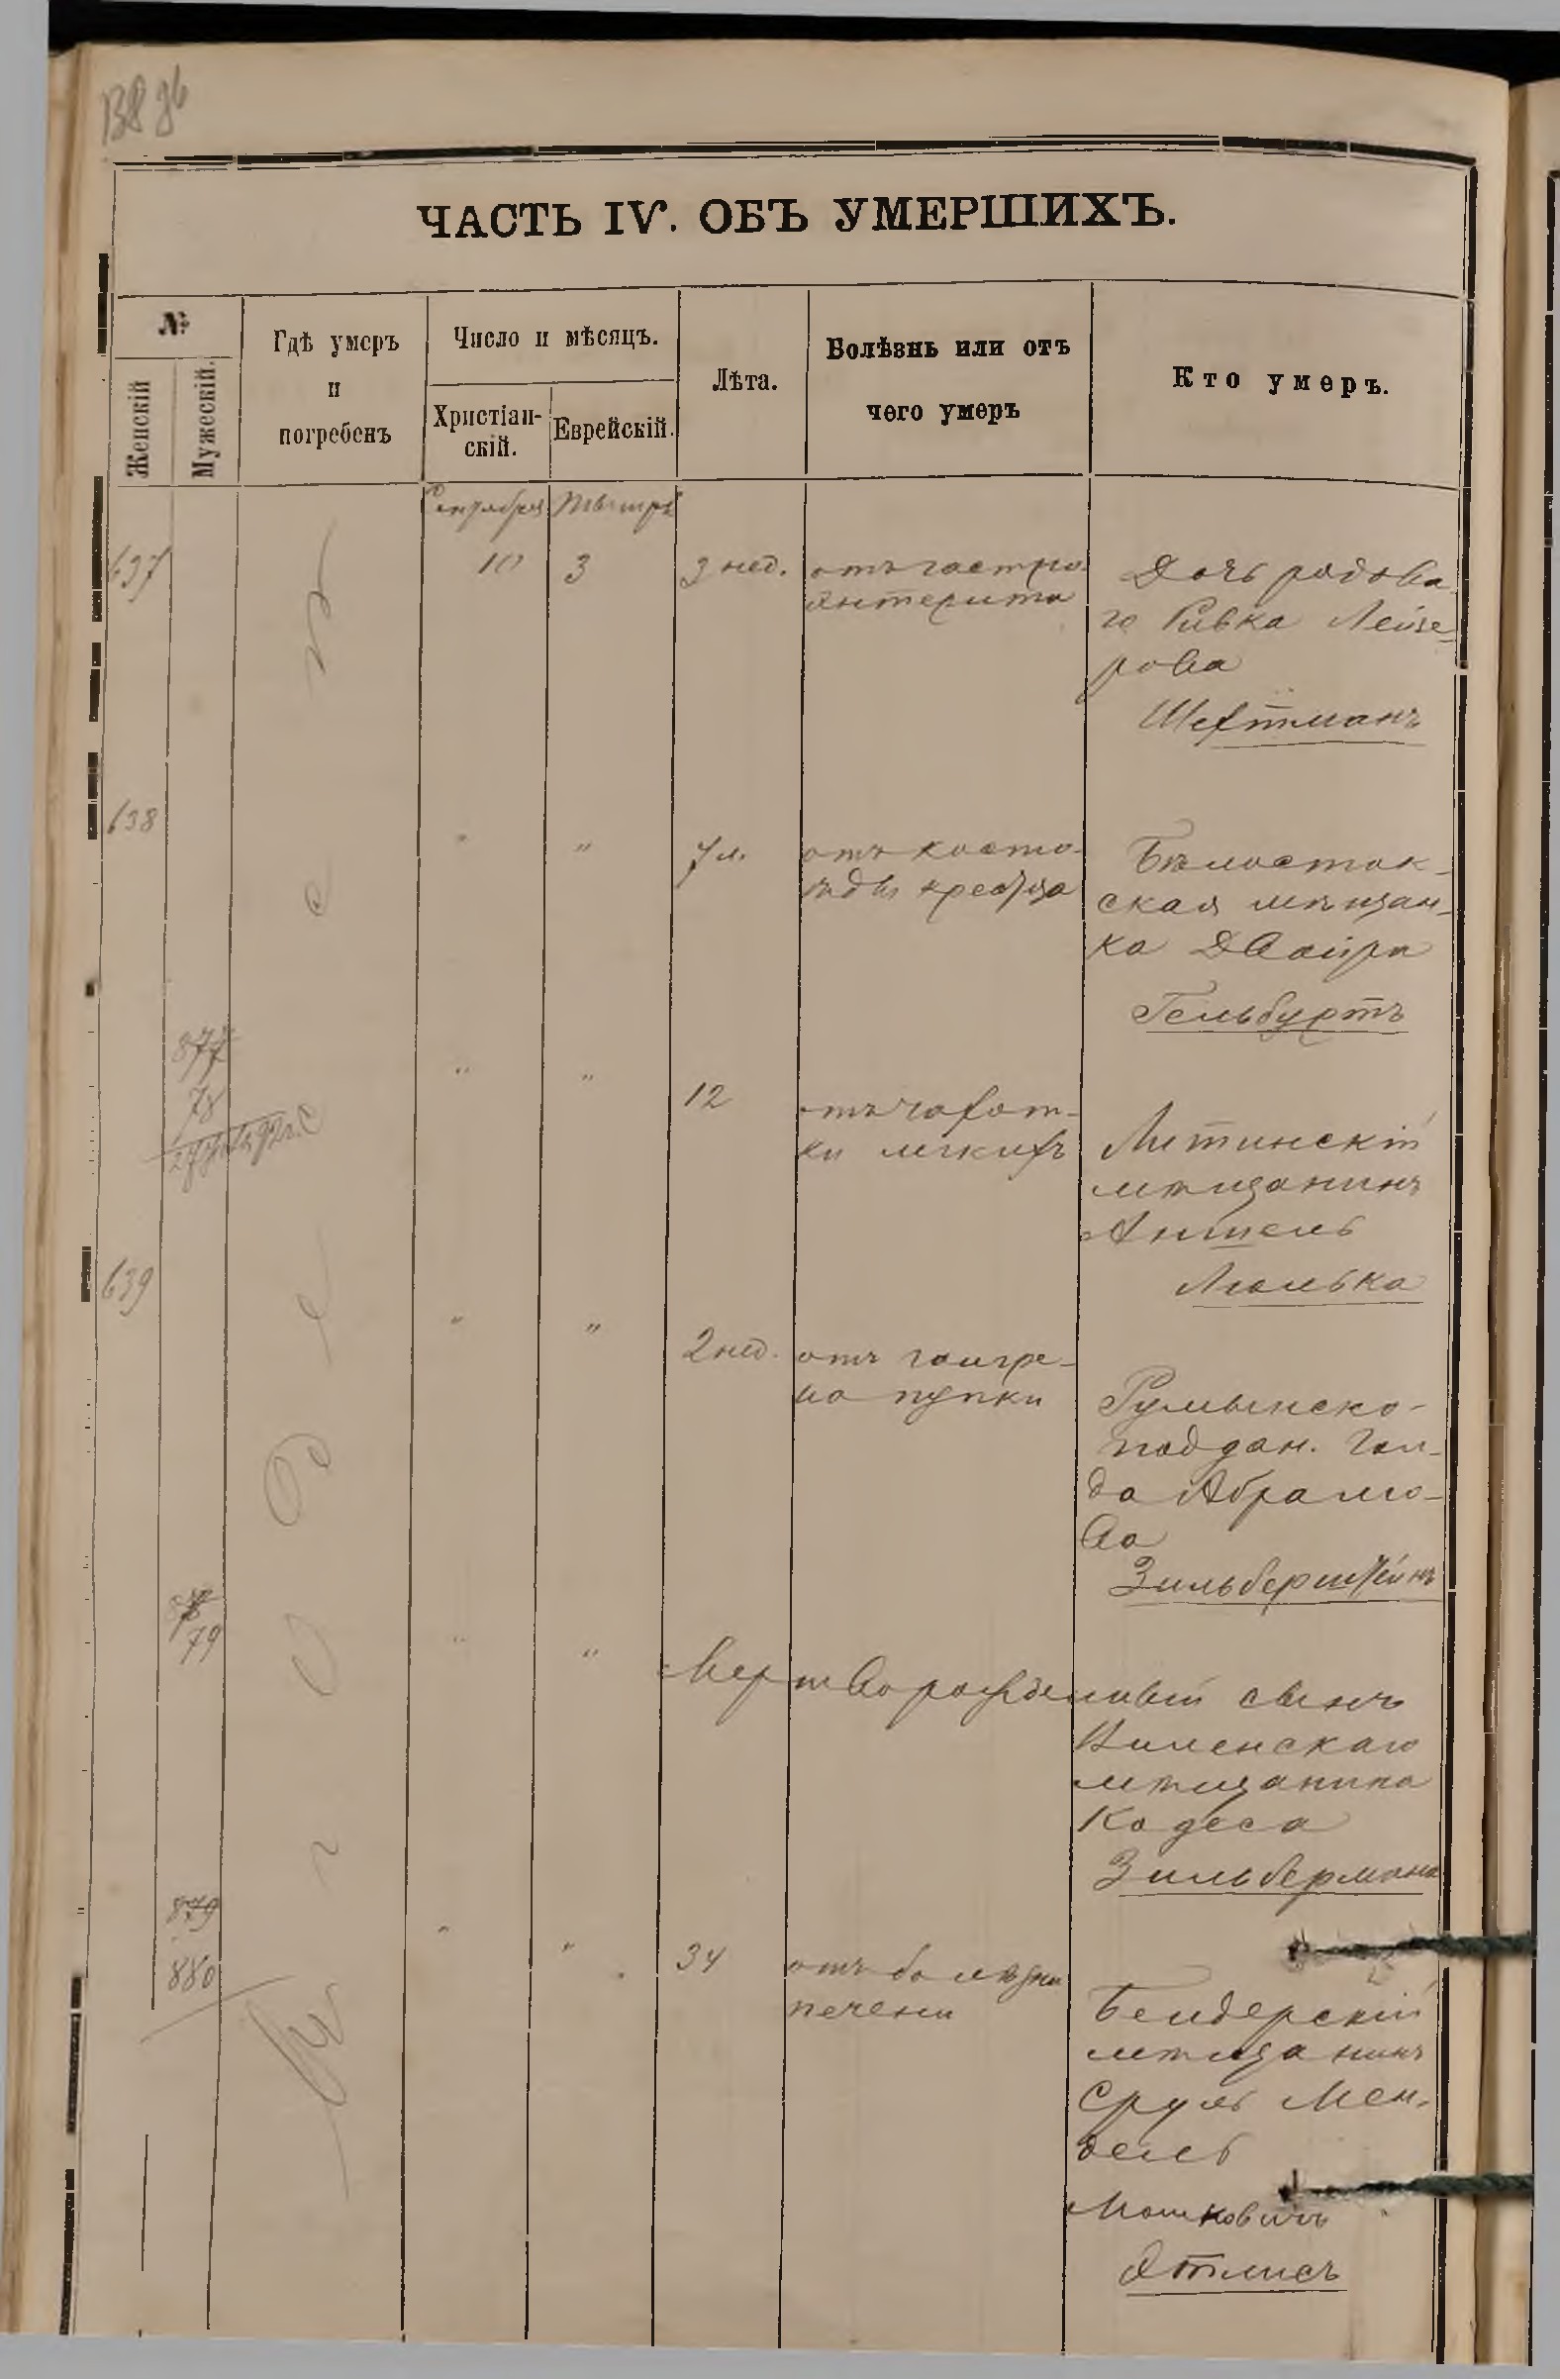 ЧАСТЬ IV. ОБЪ УМЕРШИХЪ.
№
Женскій
Мужескій.
Гдѣ умеръ
и
погребенъ
Число и мѣсяцъ.
Христіан-
скій.
Еврейскій.
Лѣта.
Болѣзнь или отъ
чего умеръ
Кто умеръ.
въ Одессѣ
Сентября
637
10
3
3 нед.
отъ гастро
энтерита
Дочь рядова
го Ривка Лейзе-
рова
Шехтманъ
638
"
"
7 л.
отъ косто-
ѣды крестца
Бѣлосток-
ская мѣщан-
ка Двойра
Гельбуртъ
877
78
"
"
12
отъ чахот-
ки легкихъ
Литинскій
мѣщанинъ
Аншель
Люлька
639
"
"
2 нед.
отъ гангре-
на пупки
Румынско-
поддан. Гол-
да Абрамо-
ва
Зильберштейнъ
878
79
"
"
Мертворожденный сынъ
Виленскаго
мѣщанина
Кадеса
Зильбермана
879
880
"
"
34
отъ болѣзни
печени
Бендерскій
мѣщанинъ
Сруль Мен-
дель
Мошковичъ